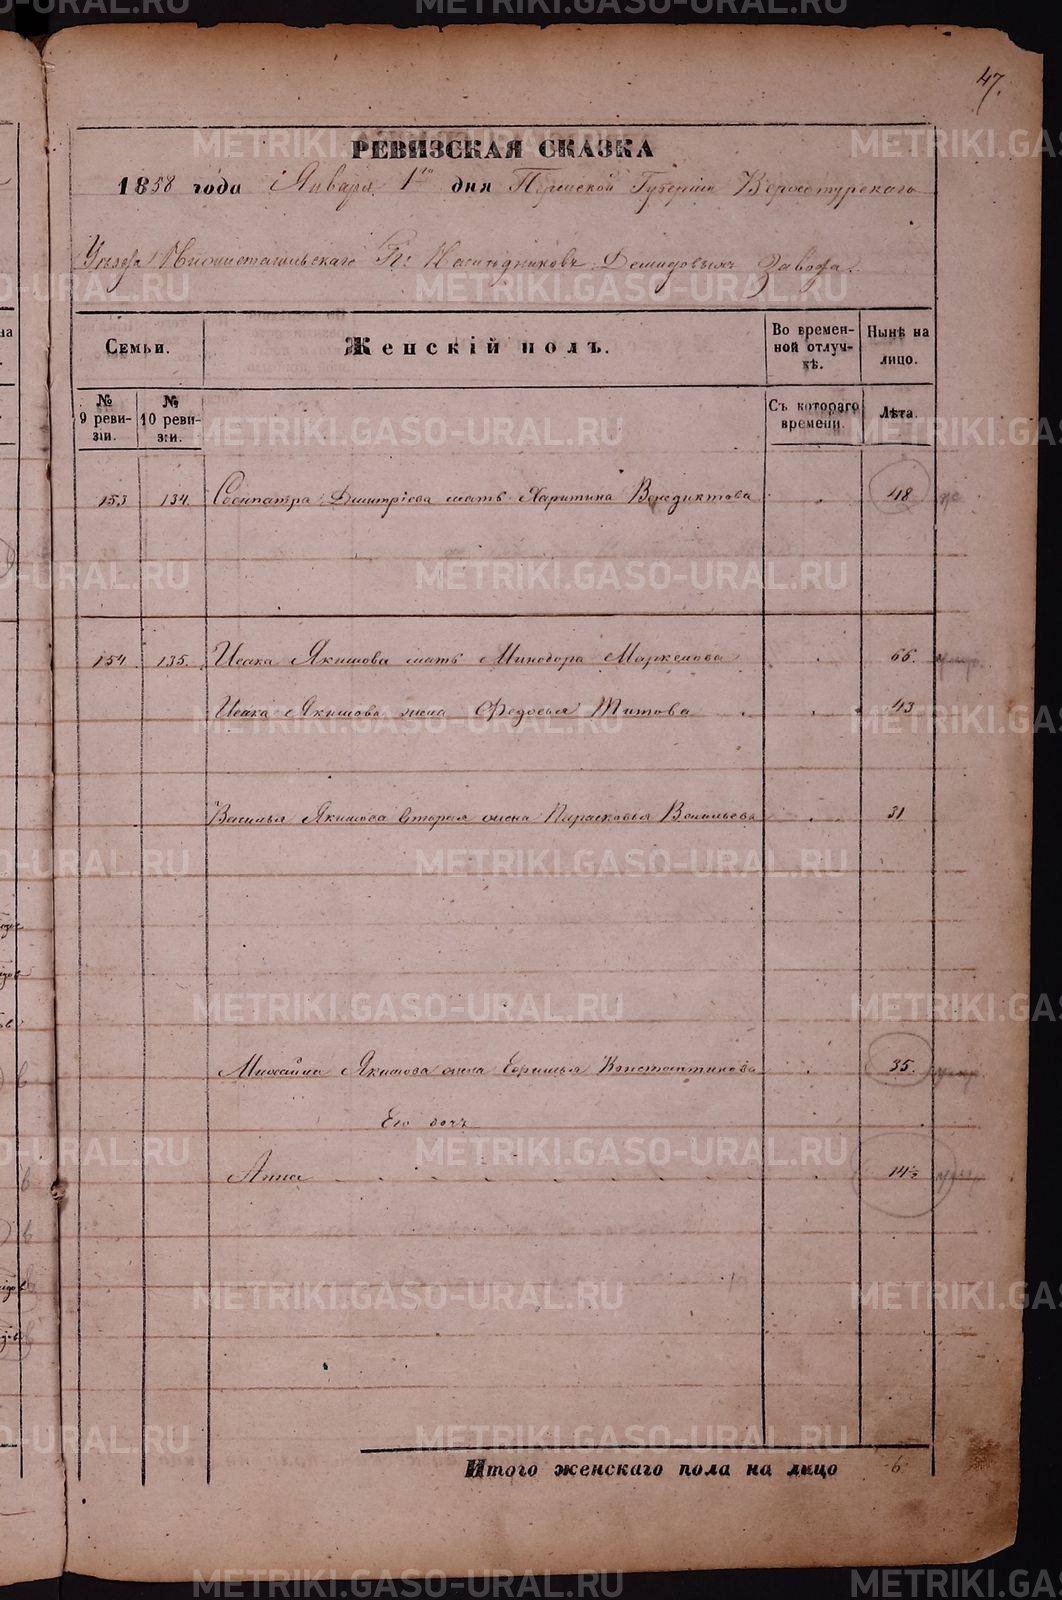 47.
РЕВИЗСКАЯ СКАЗКА
1858 года Января 1го дня Пермской Губерніи Верхотурскаго
Уезда Нижнетагильскаго Гг. Наследниковъ Демидовыхъ Завода.
Семьи.
Женскій полъ.
Во временной отлучкѣ.
Нынѣ на лицо.
№ 9 ревизіи.
№ 10 ревизіи.
Съ котораго времени.
Лѣта.
153 134. Сосипатра Дмитріева мать Харитина Венедиктова 48
154 135. Исака Якимова мать Минодора Маркелова 66.
Исака Якимова жена Федосья Титова 43
Василья Якимова вторая жена Парасковья Васильева 31
Михайла Якимова жена Константинова 35.
Его дочь
Анна 14½
Итого женскаго пола на лицо 6
METRIKI.GASO-URAL.RU